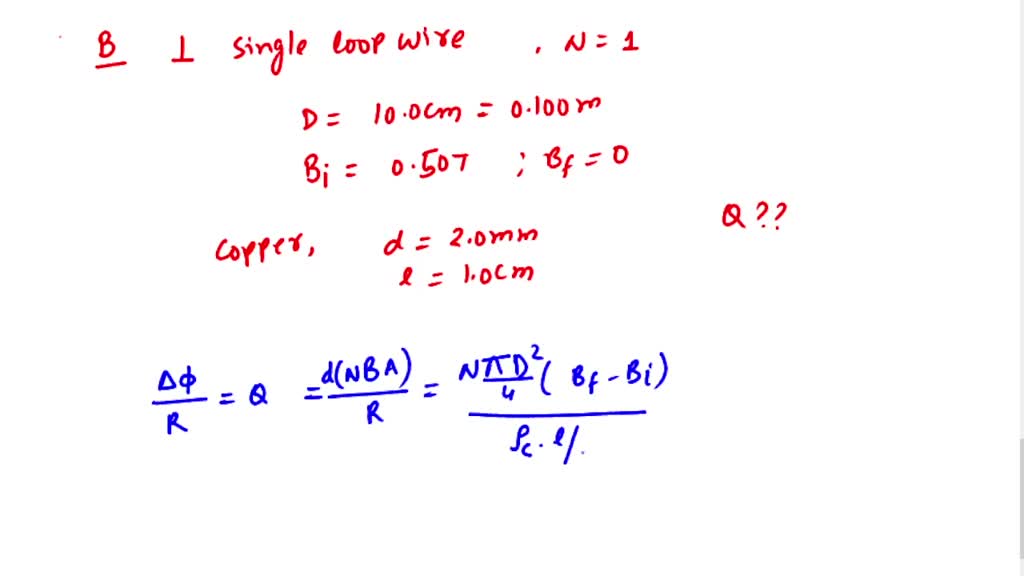 B ⊥ single loop wire , N = 1
D = 10.0cm = 0.100m
Bi = 0.50T ; Bf = 0
Q ??
Copper, d = 2.0mm
l = 1.0cm
Δϕ/R = Q = d(NBA)/R = N πD²/4 (Bf - Bi) / ρc . l/.